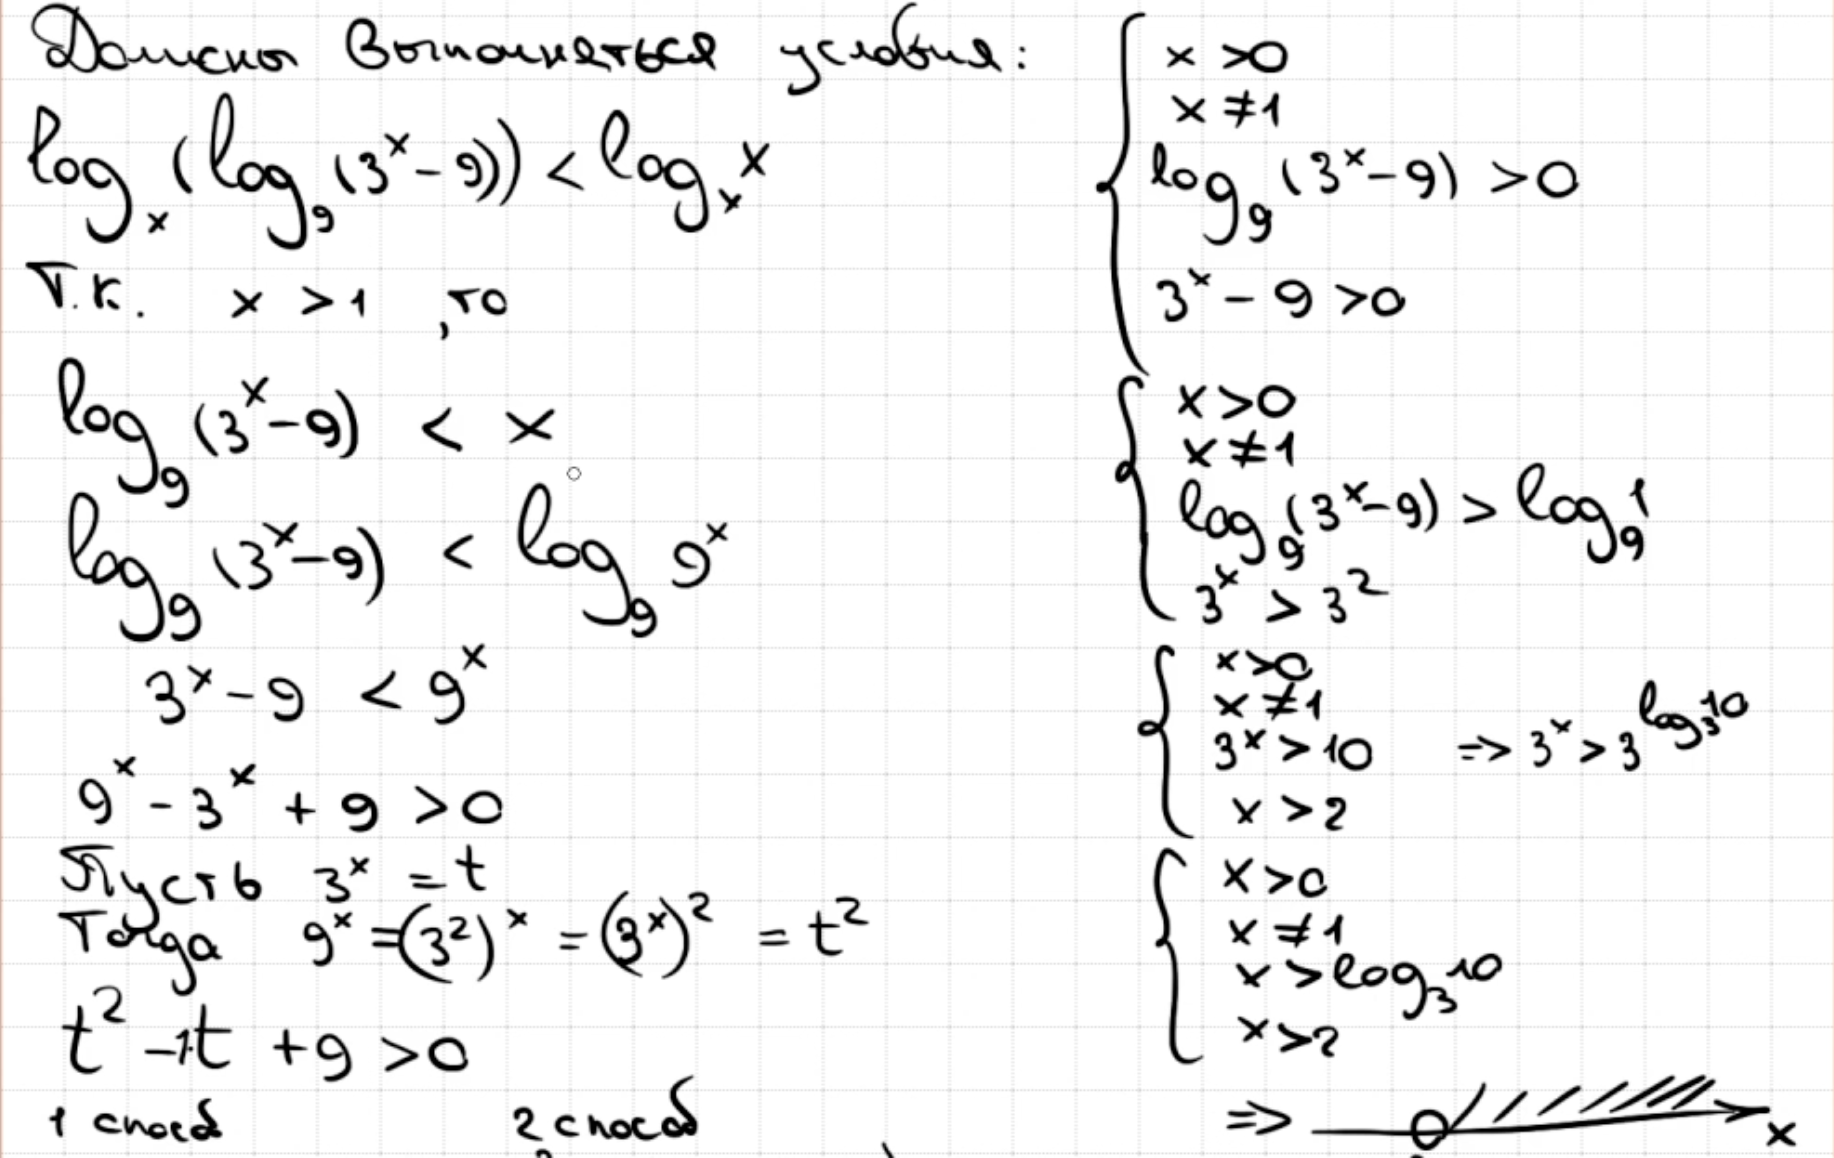 Должны выполняться условия:
log_x (log_9 (3^x - 9)) < log_x x
Т.к. x > 1, то
log_9 (3^x - 9) < x
log_9 (3^x - 9) < log_9 9^x
3^x - 9 < 9^x
9^x - 3^x + 9 > 0
Пусть 3^x = t
Тогда 9^x = (3^2)^x = (3^x)^2 = t^2
t^2 - 1·t + 9 > 0
1 способ
2 способ
x > 0
x ≠ 1
log_9 (3^x - 9) > 0
3^x - 9 > 0
x > 0
x ≠ 1
log_9 (3^x - 9) > log_9 1
3^x > 3^2
x > 0
x ≠ 1
3^x > 10 => 3^x > 3^{log_3 10}
x > 2
x > 0
x ≠ 1
x > log_3 10
x > 2
=> x